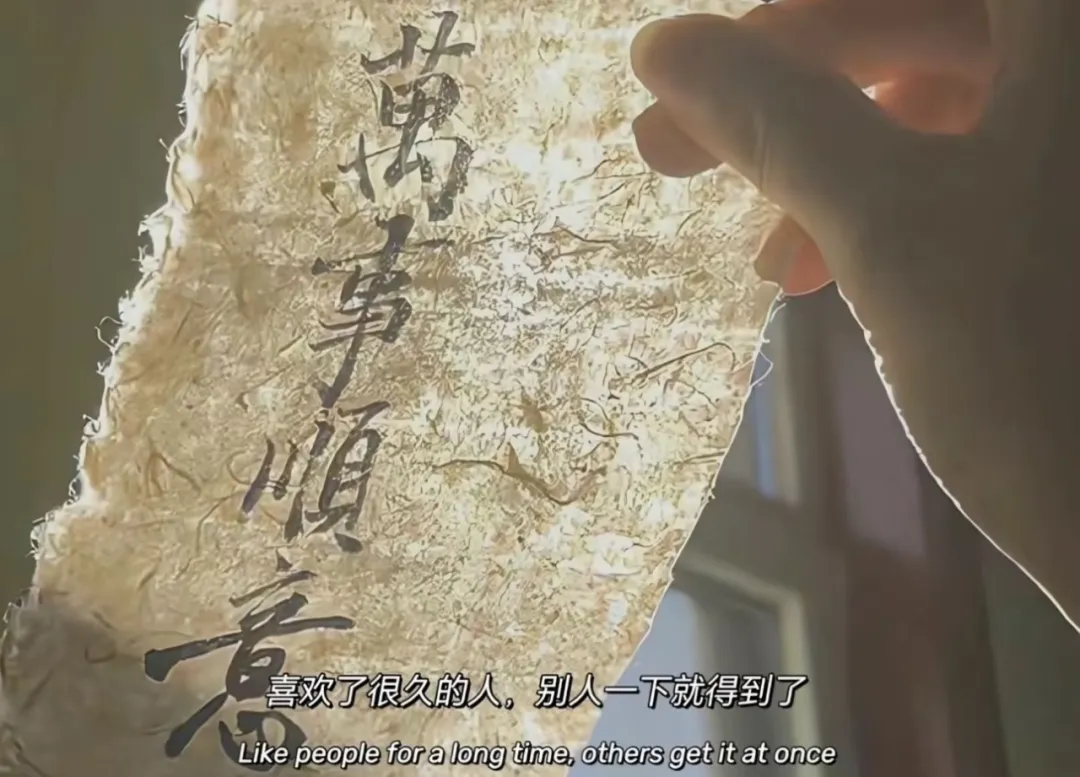 萬事順意
喜欢了很久的人，别人一下就得到了
Like people for a long time, others get it at once